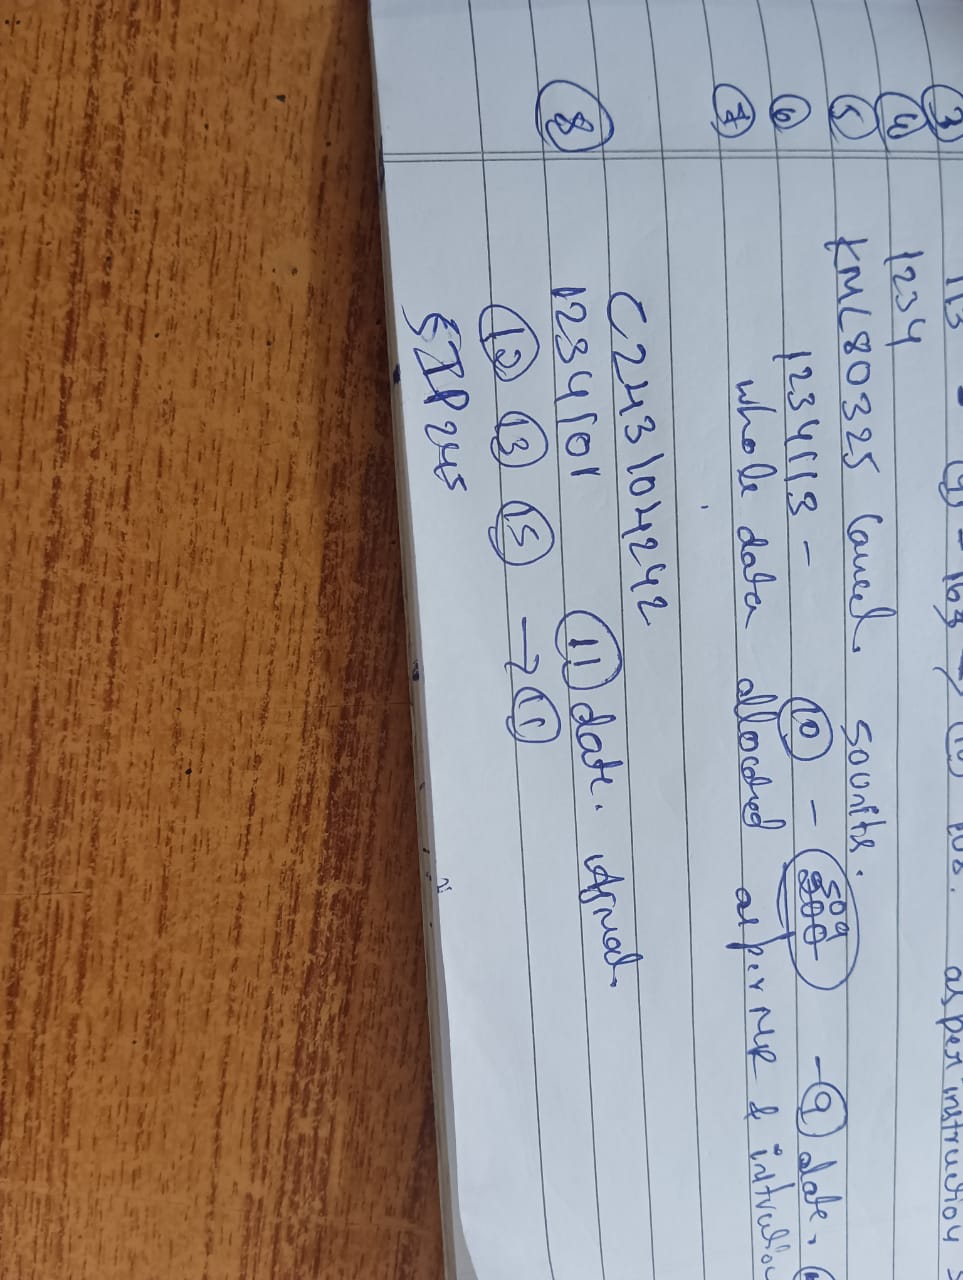 ③ 113 - ⑨ - 163 → ⑩ as per instruction
④ 1234
⑤ KML80325 Cancel. 50 units.
⑥ 1234113 - ⑩ - 500 - ⑨ date.
⑦ whole data allocated as per MR &
C243104242
⑧ 1234101 ⑪ date.
⑫ ⑬ ⑮ → ⑪
5IP245